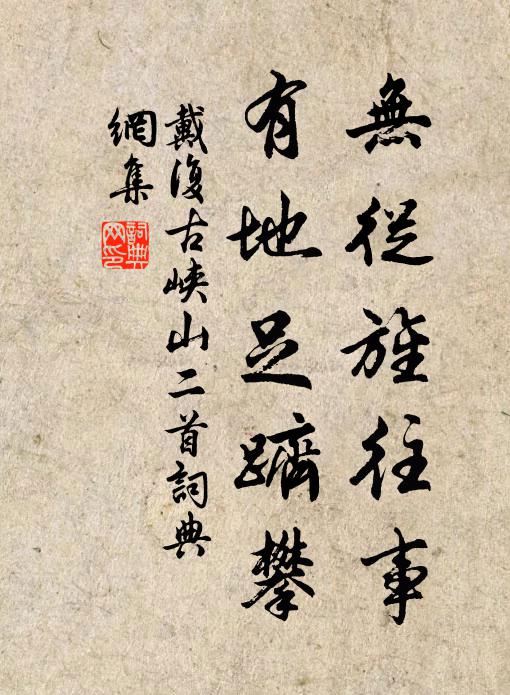 無從旌往事
有地足躋攀
戴復古峽山二首詞典
網集
詞典
网印